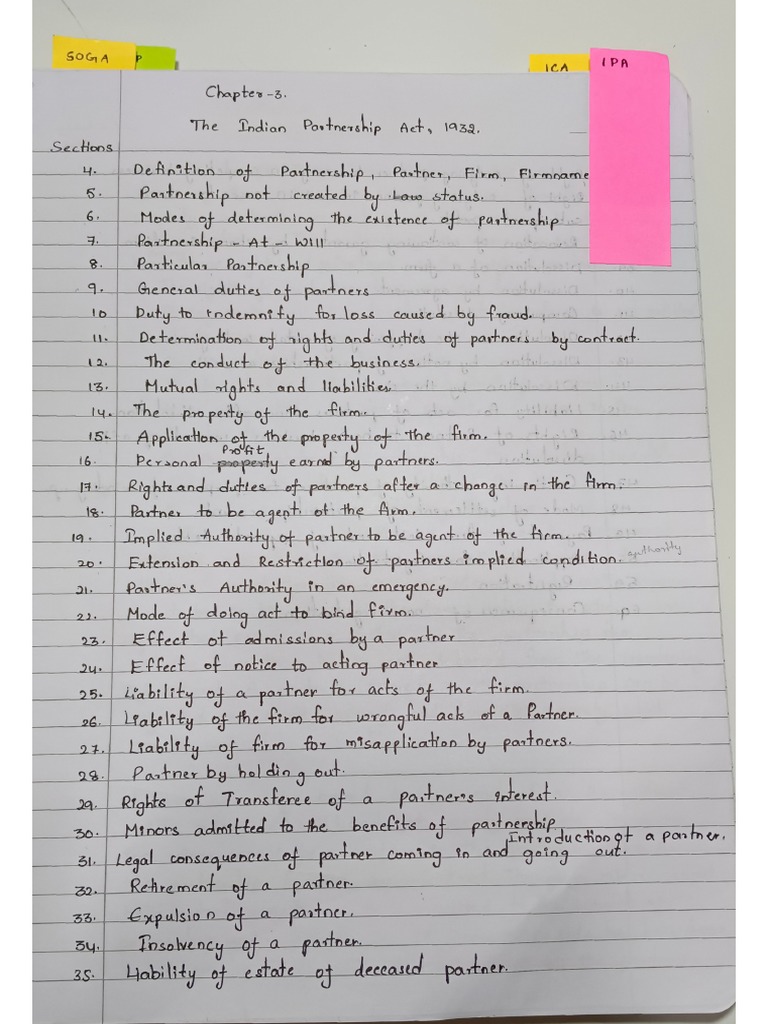 SOGA
P
ICA
IPA
Chapter-3.
The Indian Partnership Act, 1932.
Sections
4. Definition of Partnership, Partner, Firm, Firmname
5. Partnership not created by Law status.
6. Modes of determining the existence of partnership
7. Partnership - At - Will
8. Particular Partnership
9. General duties of partners
10 Duty to indemnify for loss caused by fraud.
11. Determination of rights and duties of partners by contract.
12. The conduct of the business.
13. Mutual rights and liabilities.
14. The property of the firm.
15. Application of the property of the firm.
Profit
16. Personal property earnd by partners.
17. Rights and duties of partners after a change in the firm.
18. Partner to be agent of the firm.
19. Implied Authority of partner to be agent of the firm.
20. Extension and Restriction of partners implied condition. authority
21. Partner's Authority in an emergency.
22. Mode of doing act to bind firm.
23. Effect of admissions by a partner
24. Effect of notice to acting partner
25. Liability of a partner for acts of the firm.
26. Liability of the firm for wrongful acts of a Partner.
27. Liability of firm for misapplication by partners.
28. Partner by holding out.
29. Rights of Transferee of a partner's interest.
30. Minors admitted to the benefits of partnership
Introduction of a partner.
31. Legal consequences of partner coming in and going out.
32. Retirement of a partner.
33. Expulsion of a partner.
34. Insolvency of a partner.
35. Liability of estate of deceased partner.